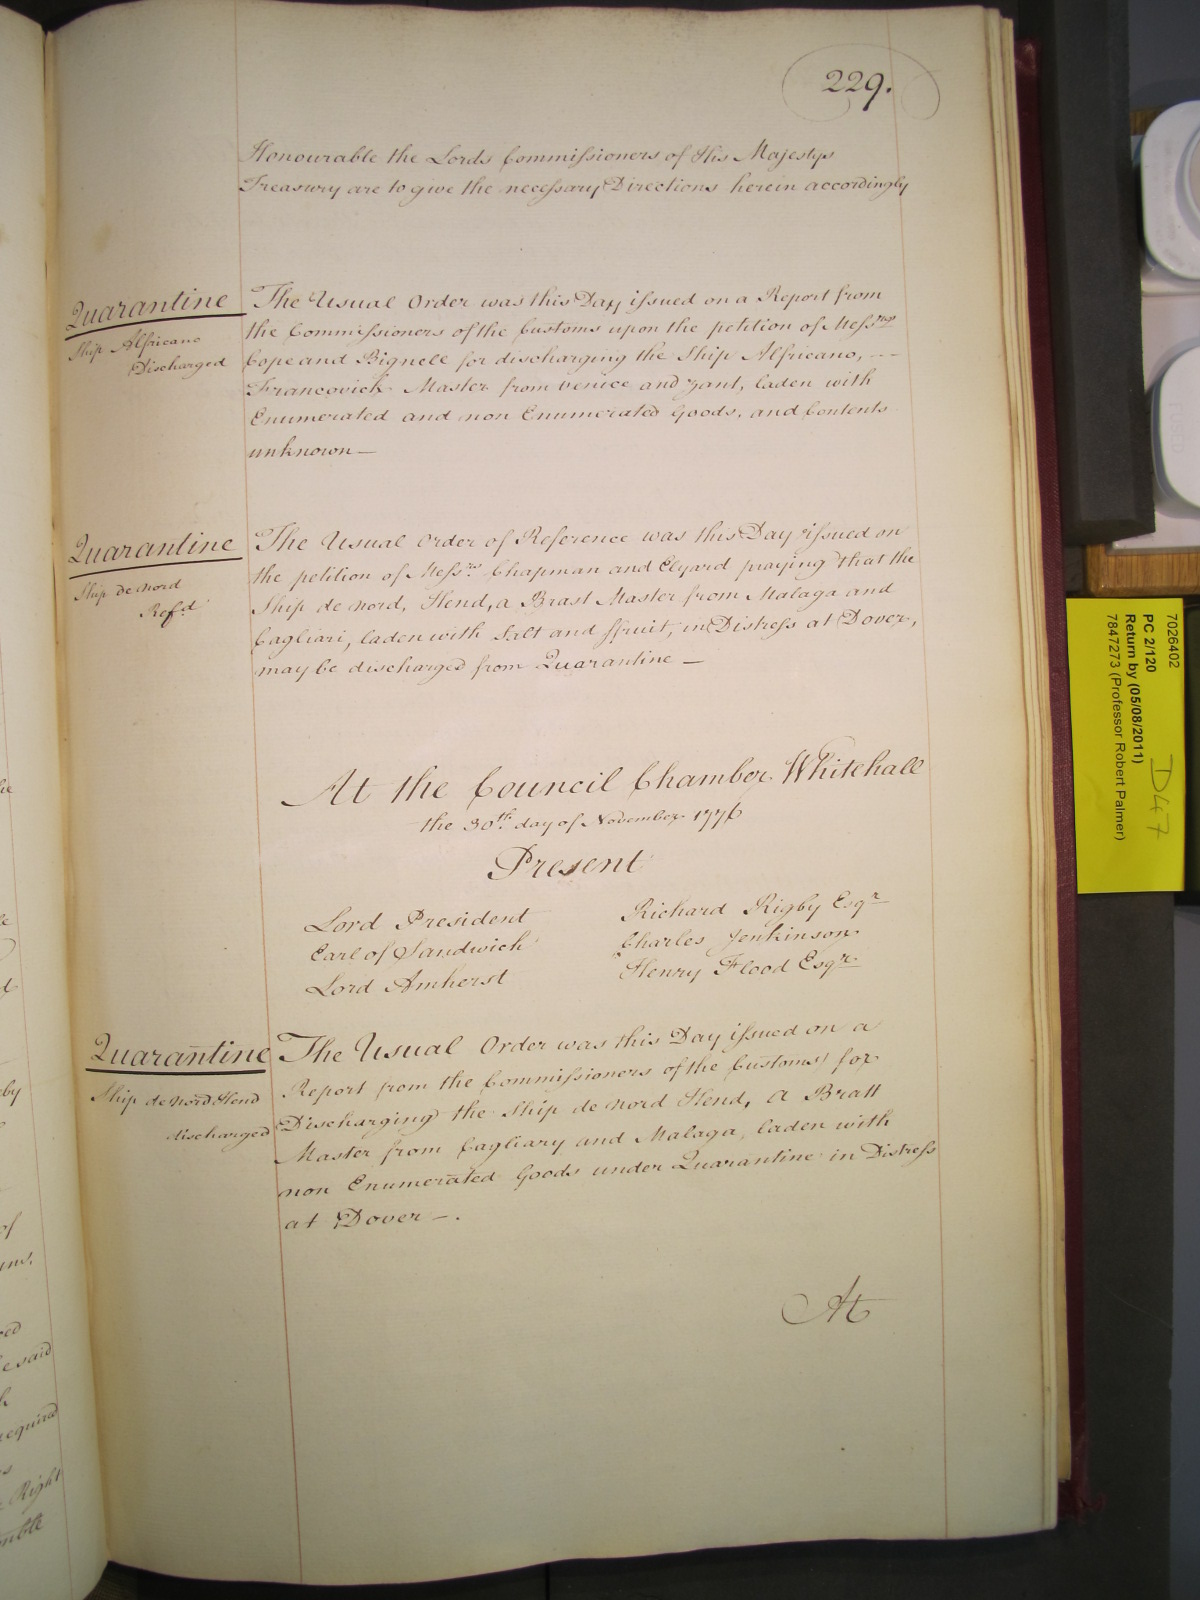 229.
Honourable the Lords Commissioners of His Majestys
Treasury are to give the necessary Directions herein accordingly
Quarantine
Ship Alfricano
Discharged
The Usual Order was this Day issued on a Report from
the Commissioners of the Customs upon the petition of Mess.rs
Cope and Bignell for discharging the Ship Alfricano, ---
Francovich Master from Venice and Zant, laden with
Enumerated and non Enumerated Goods, and Contents
unknown —
Quarantine
Ship de Nord
Refd
The Usual Order of Reference was this Day issued on
the petition of Messrs. Chapman and Elyard praying that the
Ship de Nord, Hend, a Brast Master from Malaga and
Cagliari, laden with Salt and ffruit, in Distress at Dover,
may be discharged from Quarantine —
At the Council Chamber Whitehall
the 30th. day of November 1776
Present
Lord President
Earl of Sandwich
Lord Amherst
Richard Rigby Esqr
Charles Jenkinson
Henry Flood Esqr.
Quarantine
Ship de Nord Hend
discharged
The Usual Order was this Day issued on a
Report from the Commissioners of the Customs for
Discharging the Ship de Nord Hend, A Bratt
Master from Cagliary and Malaga, laden with
non Enumerated Goods under Quarantine in Distress
at Dover —.
At
7026402
PC 2/120
Return by (05/08/2011)
7847273 (Professor Robert Palmer)
D47